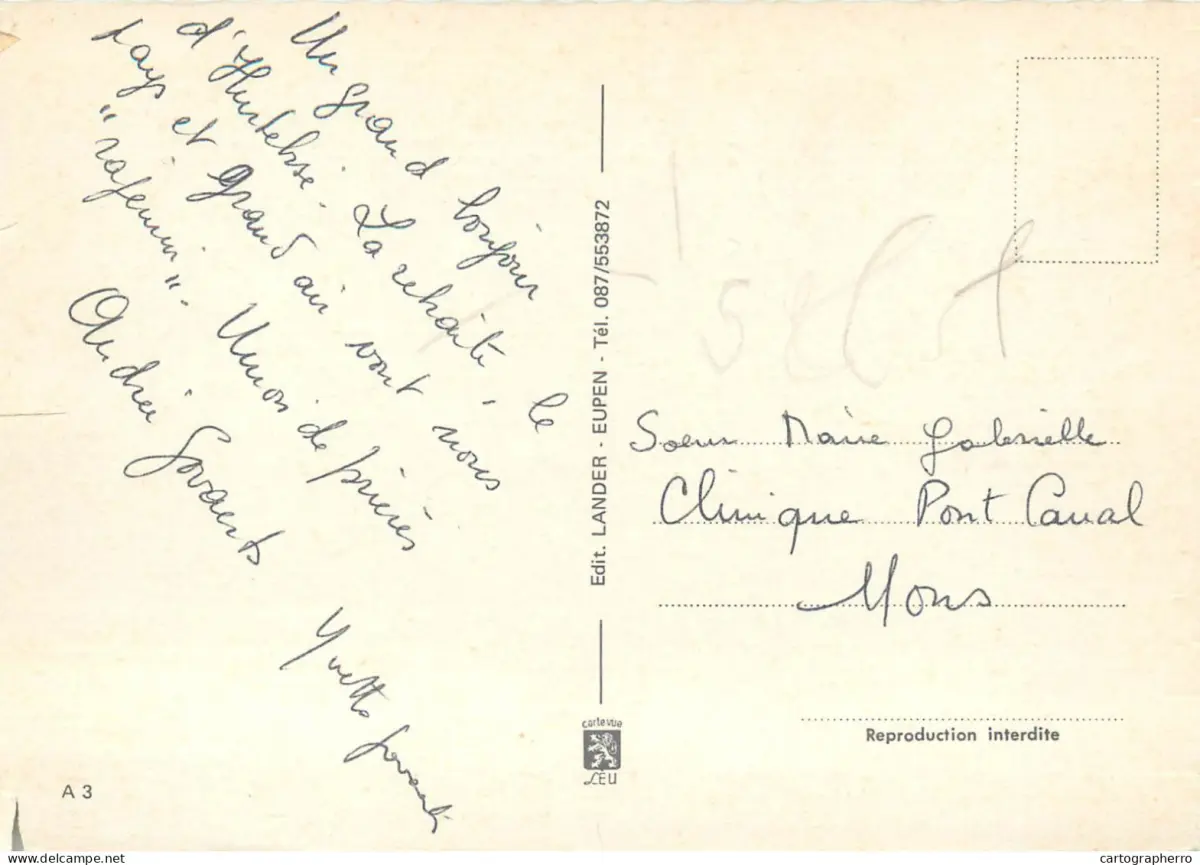 Un grand bonjour
d'Hurtebise. La retraite, le
pays et grand air vont nous
"rajeunir". Union de prières
Andrée Govaerts
Yvette Govaerts
Edit. LANDER - EUPEN - Tél. 087/553872
cartevue
LÉU
A 3
Soeur Marie Gabrielle
Clinique Pont Canal
Mons
Reproduction interdite
www.delcampe.net
cartographerro